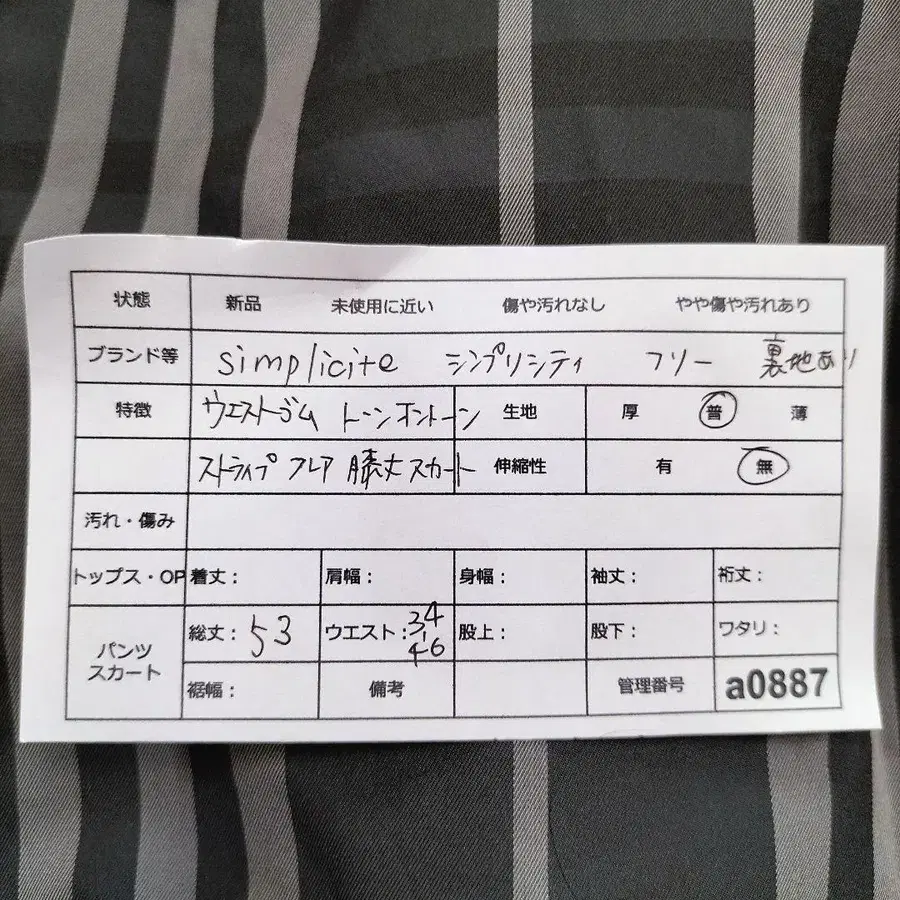 状態 新品 未使用に近い 傷や汚れなし やや傷や汚れあり
ブランド等 simplicite シンプリシティ フリー 裏地あり
特徴 ウエストゴム トーンオントーン 生地 厚 普 薄
ストライプ フレア 膝丈スカート 伸縮性 有 無
汚れ・傷み
トップス・OP 着丈： 肩幅： 身幅： 袖丈： 裄丈：
パンツ スカート 総丈：53 ウエスト：34-46 股上： 股下： ワタリ：
裾幅： 備考 管理番号 a0887